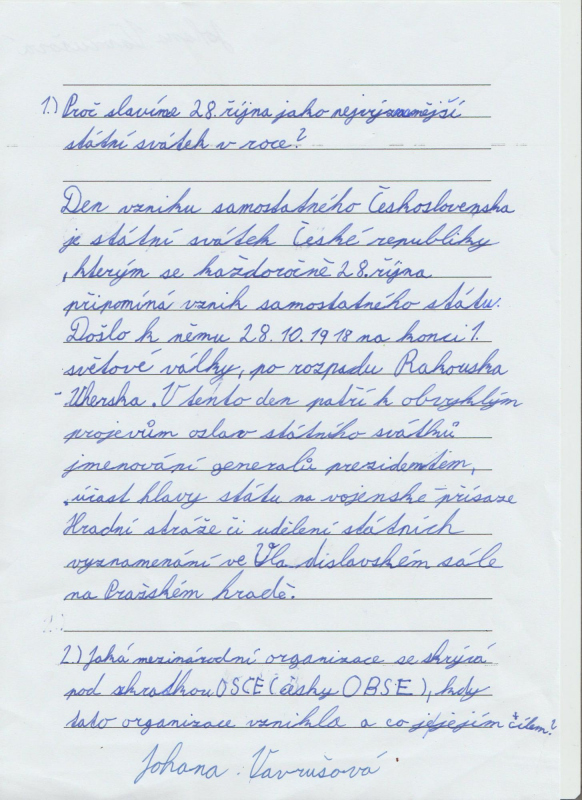 1.) Proč slavíme 28. října jako nejvýznamnější
státní svátek v roce?
Den vzniku samostatného Československa
je státní svátek České republiky
, kterým se každoročně 28. října
připomíná vznik samostatného státu.
Došlo k němu 28.10.1918 na konci 1.
světové války, po rozpadu Rakouska
-Uherska. V tento den patří k obvyklým
projevům oslav státního svátků
jmenování generalů prezidentem,
účast hlavy státu na vojenské přísaze
Hradní stráže či udělení státních
vyznamenání ve Vla dislavském sále
na Pražském hradě.
2.) Jaká mezinárodní organizace se skrývá
pod zkratkou OSCE (česky OBSE), kdy
tato organizace vznikla a co je jejím cílem?
Johana Vavrušová